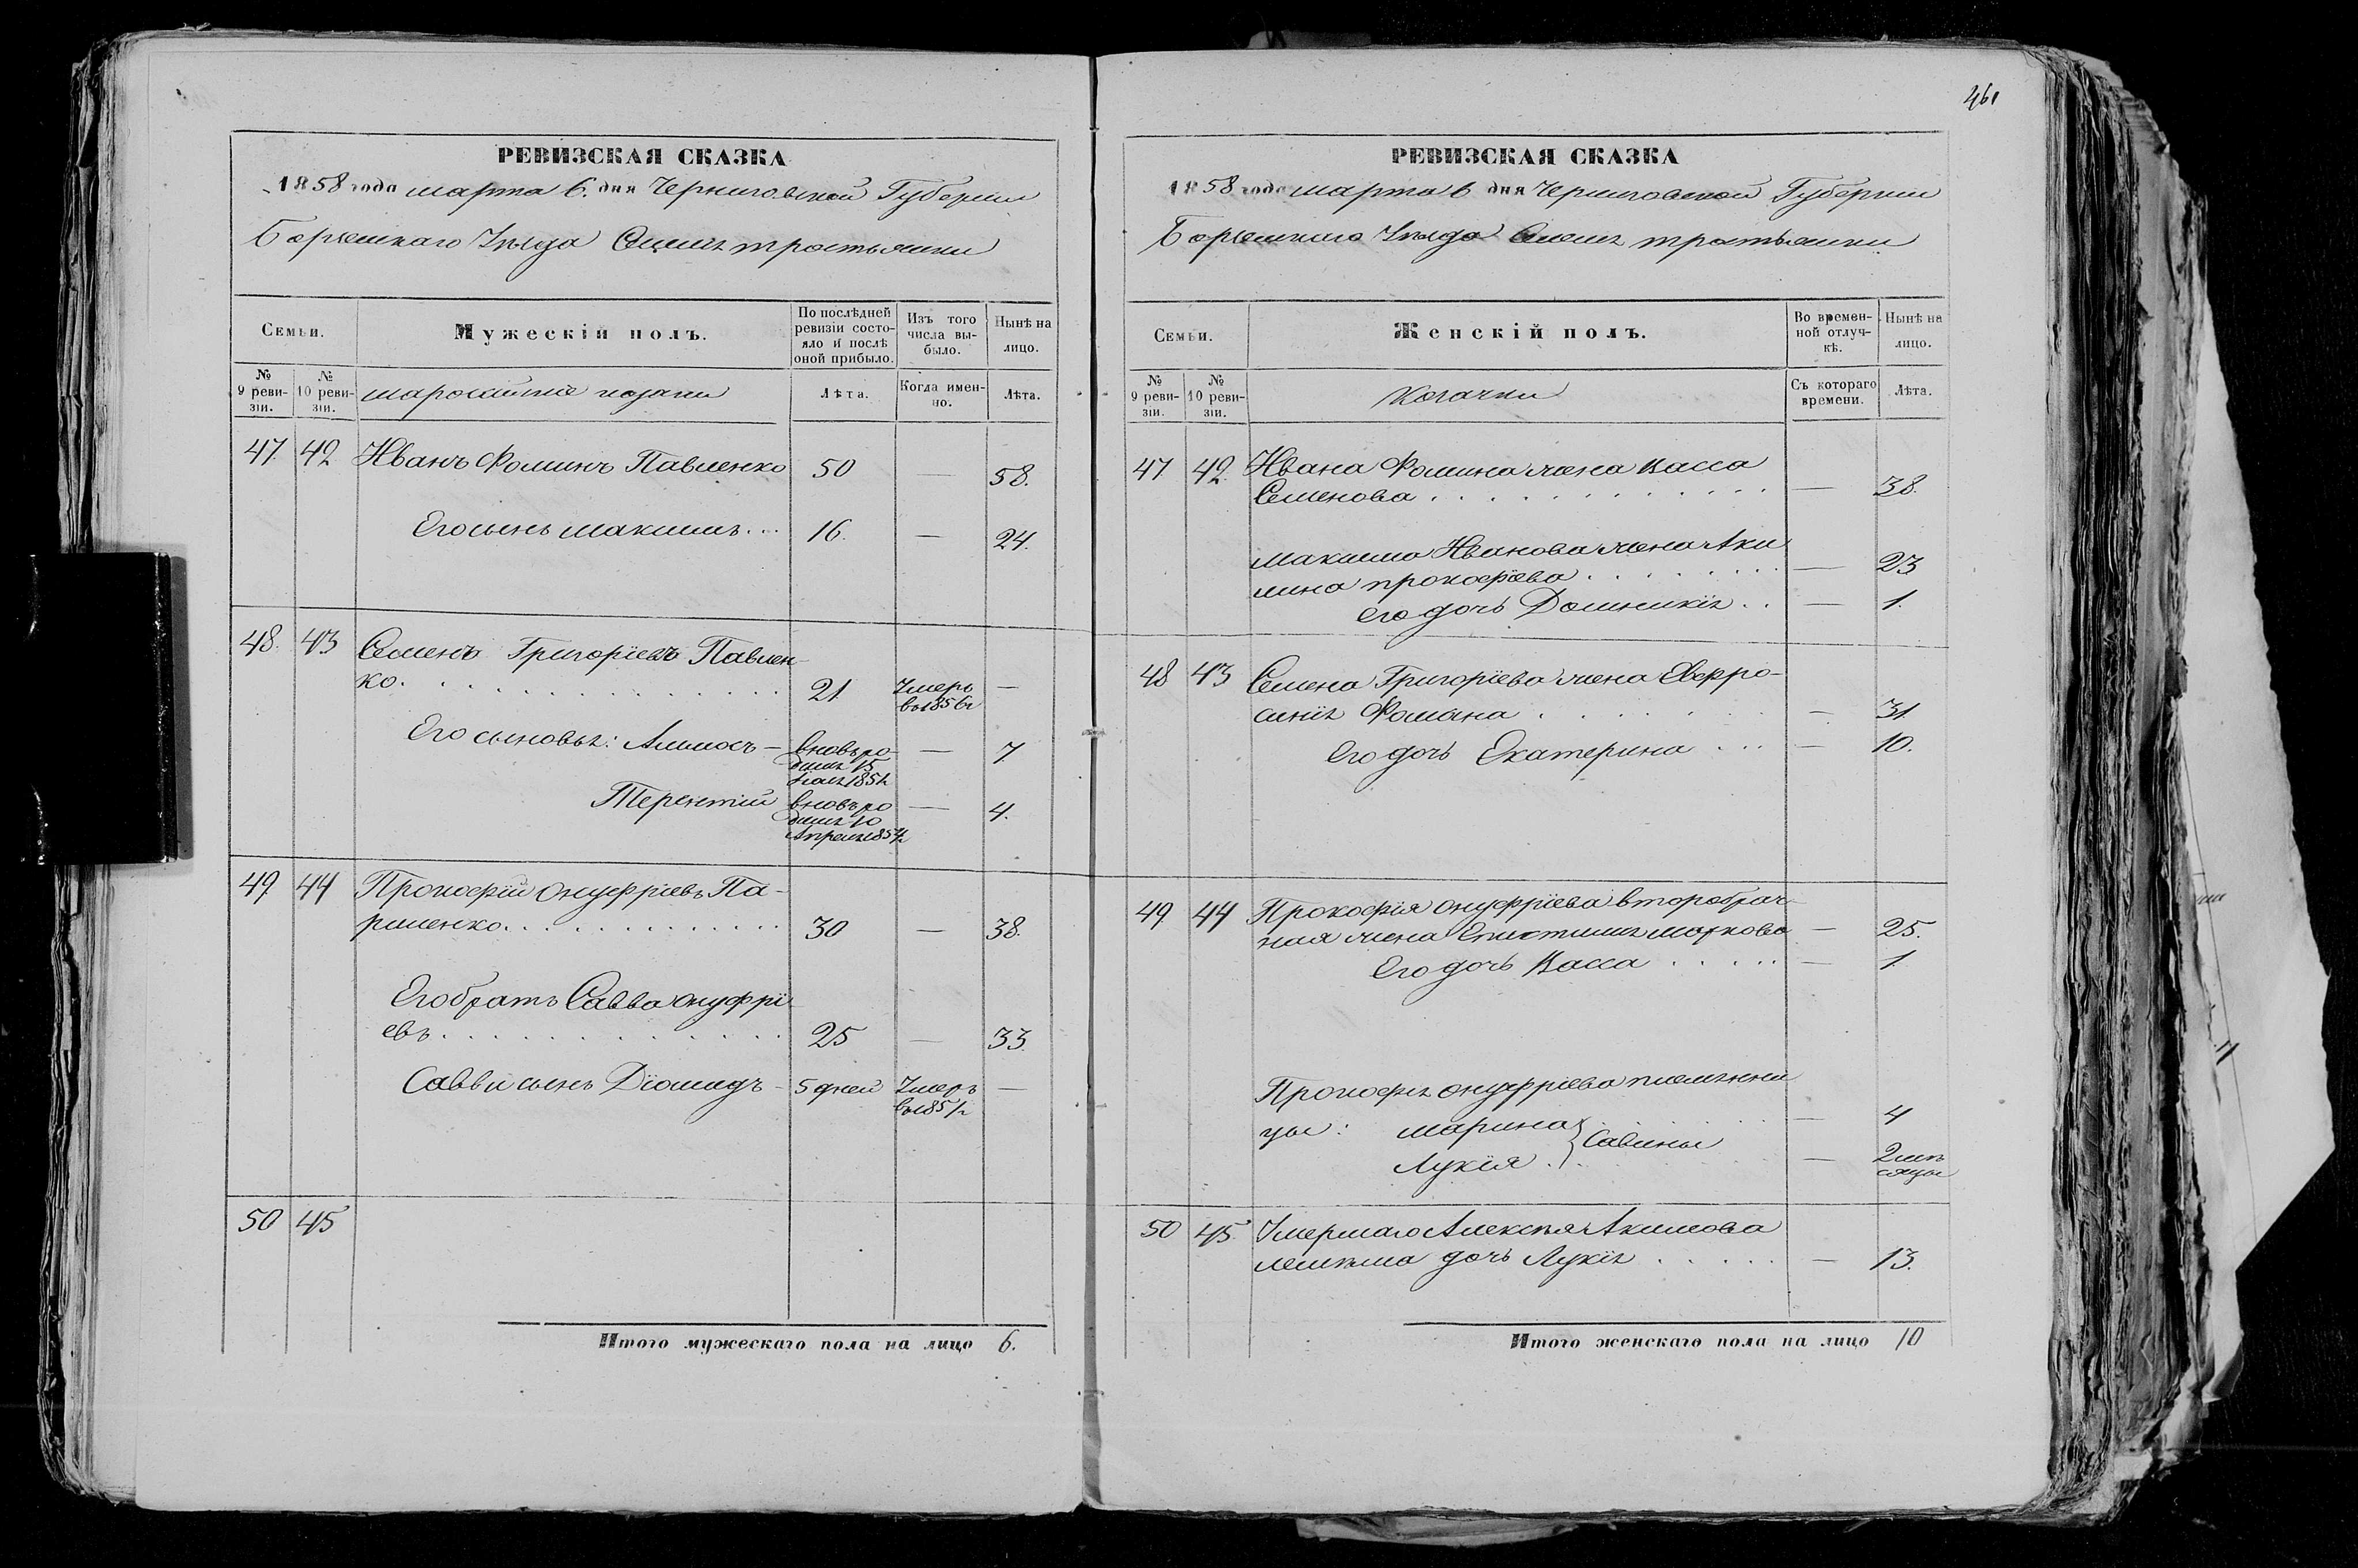 461
РЕВИЗСКАЯ СКАЗКА
1858 года марта 6. дня Черниговской Губернии
Борзенскаго Уѣзда Тростьянки
Семьи.
Мужескій полъ.
По послѣдней ревизіи состояло и послѣ оной прибыло.
Изъ того числа выбыло.
Нынѣ на лицо.
№ 9 ревизіи.
№ 10 ревизіи.
малороссійскіе козаки
Лѣта.
Когда именно.
Лѣта.
47 42 Иванъ Фоминъ Павленко 50 — 58.
Его сынъ Максимъ... 16. — 24.
48. 43 Семенъ Григоріевъ Павлен-
ко. 21 Умеръ въ 1856г —
Его сыновья: — вновь ро- — 7
дился 15
мая 1851г
Терентій вновь ро — 4.
дился 10
Апреля 1854г
49 44 Прокофій Онуфріевъ Па-
рменко. 30 — 38.
Его братъ Савва Онуфрі
евъ. 25 — 33.
Саввы сынъ Діомидъ - 5 дней Умеръ —
въ 1851г
50 45
Итого мужескаго пола на лицо 6.
РЕВИЗСКАЯ СКАЗКА
1858 года марта 6 дня Черниговской Губернии
Борзенскаго Уѣзда Тростьянки
Семьи.
Женскій полъ.
Во временной отлучкѣ.
Нынѣ на лицо.
№ 9 ревизіи.
№ 10 ревизіи.
Козачки
Съ котораго времени.
Лѣта.
47 42. Ивана Фомина жена Васса
Семенова — 38.
Максима Иванова жена Аки
лина Прокофіева — 23
его дочь Домникія — 1.
48 43 Семена Григоріева жена Евфро-
синія Фомина — 31
Его дочь Екатерина — 10.
49 44 Прокофія Онуфріева второбрач-
ная жена Епистимия Маркова — 25.
Его дочь Васса — 1.
Прокофія Онуфріева племянни
цы: Марина — 4
Савины
Лукія — 2 мѣ
сяцы
50 45. Умершаго Алексѣя Акимова
дочь Лукія — 13.
Итого женскаго пола на лицо 10